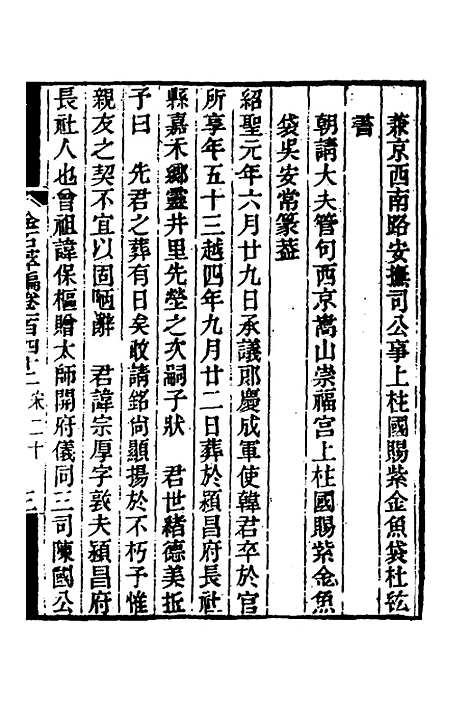 兼京西南路安撫司公事上柱國賜紫金魚袋杜紘
書
朝請大夫管句西京嵩山崇福宮上柱國賜紫金魚
袋吳安常篆葢
紹聖元年六月廿九日承議郎慶成軍使韓君卒於官
所享年五十三越四年九月廿二日葬於潁昌府長社
縣嘉禾鄉靈井里先塋之次嗣子狀　君世緒德美拆
子曰　先君之葬有日矣敢請銘尙顯揚於不朽子惟
親友之契不宜以固陋辭　君諱宗厚字敦夫潁昌府
長社人也曾祖諱保樞贈太師開府儀同三司陳國公
金石萃編卷一百四十二　宋二十　三